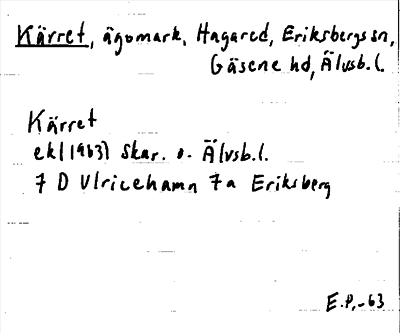 Kärret, ägomark, Hagared, Eriksbergs sn,
Gäsene hd, Älvsb.l.
Kärret
ek(1963) Skar. o. Älvsb.l.
7 D Ulricehamn 7a Eriksberg
E.P,-63